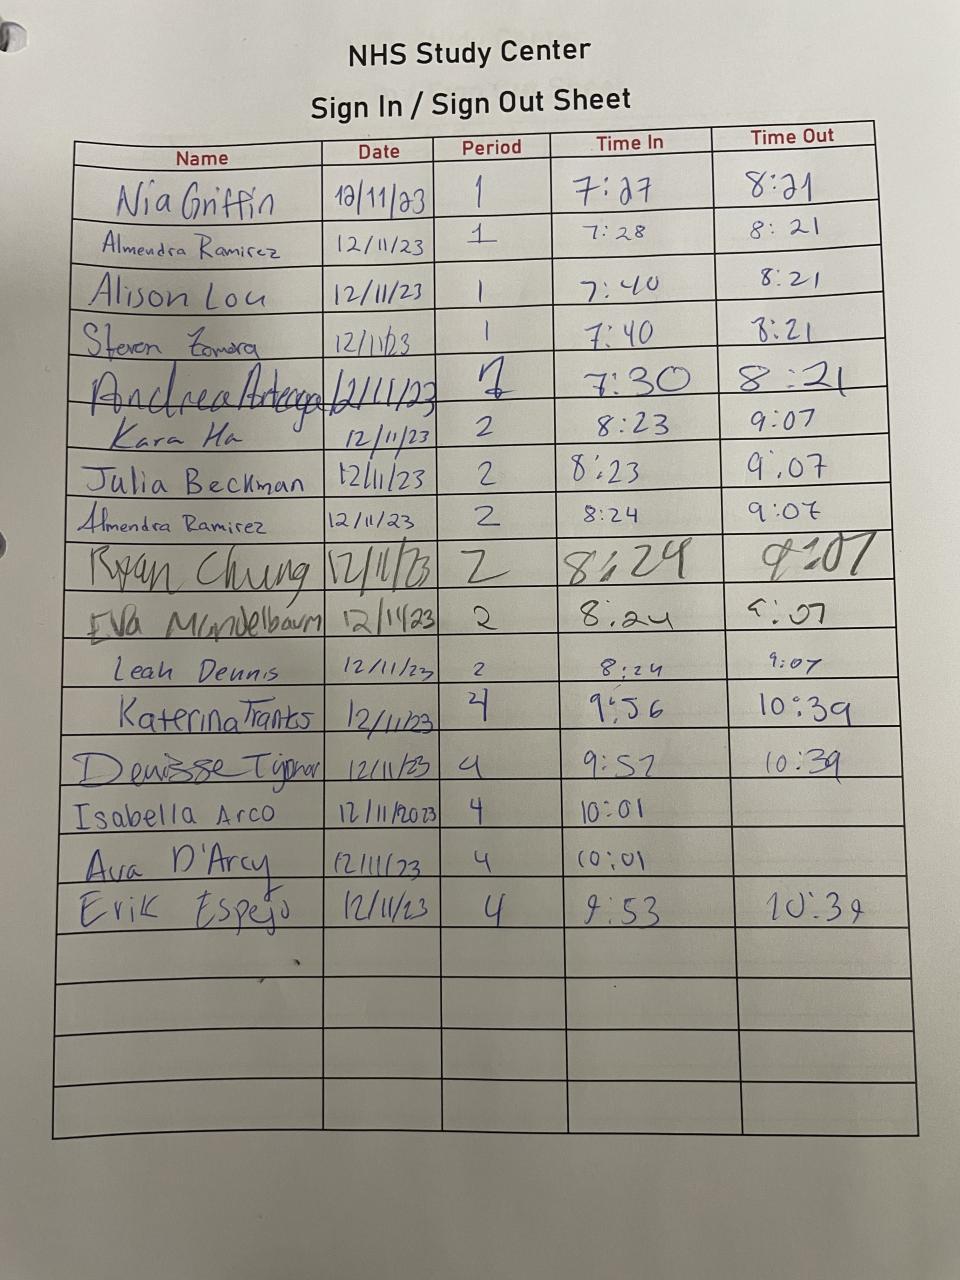 NHS Study Center
Sign In / Sign Out Sheet
Name Date Period Time In Time Out
Nia Griffin 12/11/23 1 7:27 8:21
Almendra Ramirez 12/11/23 1 7:28 8:21
Alison Lou 12/11/23 1 7:40 8:21
Steven Zamora 12/11/23 1 7:40 8:21
Andrea Arteaga 12/11/23 1 7:30 8:21
Kara Ha 12/11/23 2 8:23 9:07
Julia Beckman 12/11/23 2 8:23 9:07
Almendra Ramirez 12/11/23 2 8:24 9:07
Ryan Chung 12/11/23 2 8:24 9:07
Eva Mandelbaum 12/11/23 2 8:24 9:07
Leah Dennis 12/11/23 2 8:24 9:07
Katerina 12/11/23 4 9:56 10:39
Denisse 12/11/23 4 9:57 10:39
Isabella Arco 12/11/2023 4 10:01
Ava D'Arcy 12/11/23 4 10:01
Erik Espejo 12/11/23 4 9:53 10:39